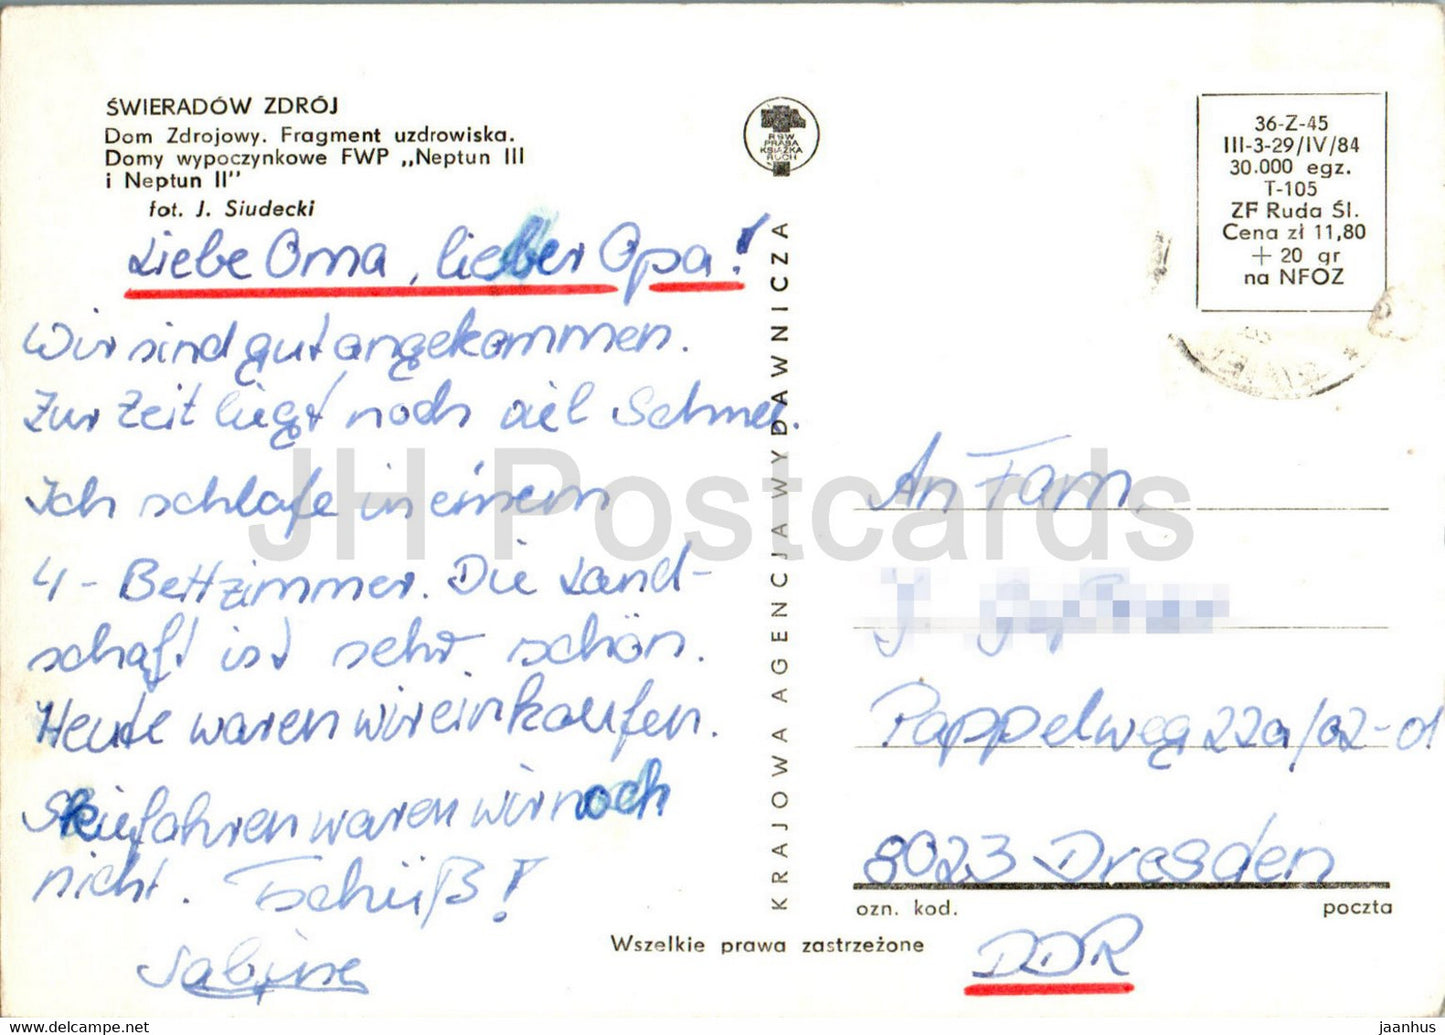 ŚWIERADÓW ZDRÓJ
Dom Zdrojowy. Fragment uzdrowiska.
Domy wypoczynkowe FWP „Neptun III
i Neptun II"
fot. J. Siudecki
Liebe Oma, lieber Opa!
Wir sind gut angekommen.
Zur Zeit liegt noch viel Schnee.
Ich schlafe in einem
4-Bettzimmer. Die Land-
schaft ist sehr schön.
Heute waren wir einkaufen.
Skiefahren waren wir noch
nicht. Tschüß!
Sabine
RSW
PRASA
KSIĄŻKA
RUCH
KRAJOWA AGENCJA WYDAWNICZA
36-Z-45
III-3-29/IV/84
30.000 egz.
T-105
ZF Ruda Śl.
Cena zł 11,80
+ 20 gr
na NFOZ
An Fam.
Pappelweg 22a/02-01
8023 Dresden
ozn. kod.
poczta
DDR
Wszelkie prawa zastrzeżone
JH Postcards
https://www.hippostcard.com/store/jaanhus-uw
jaanhus